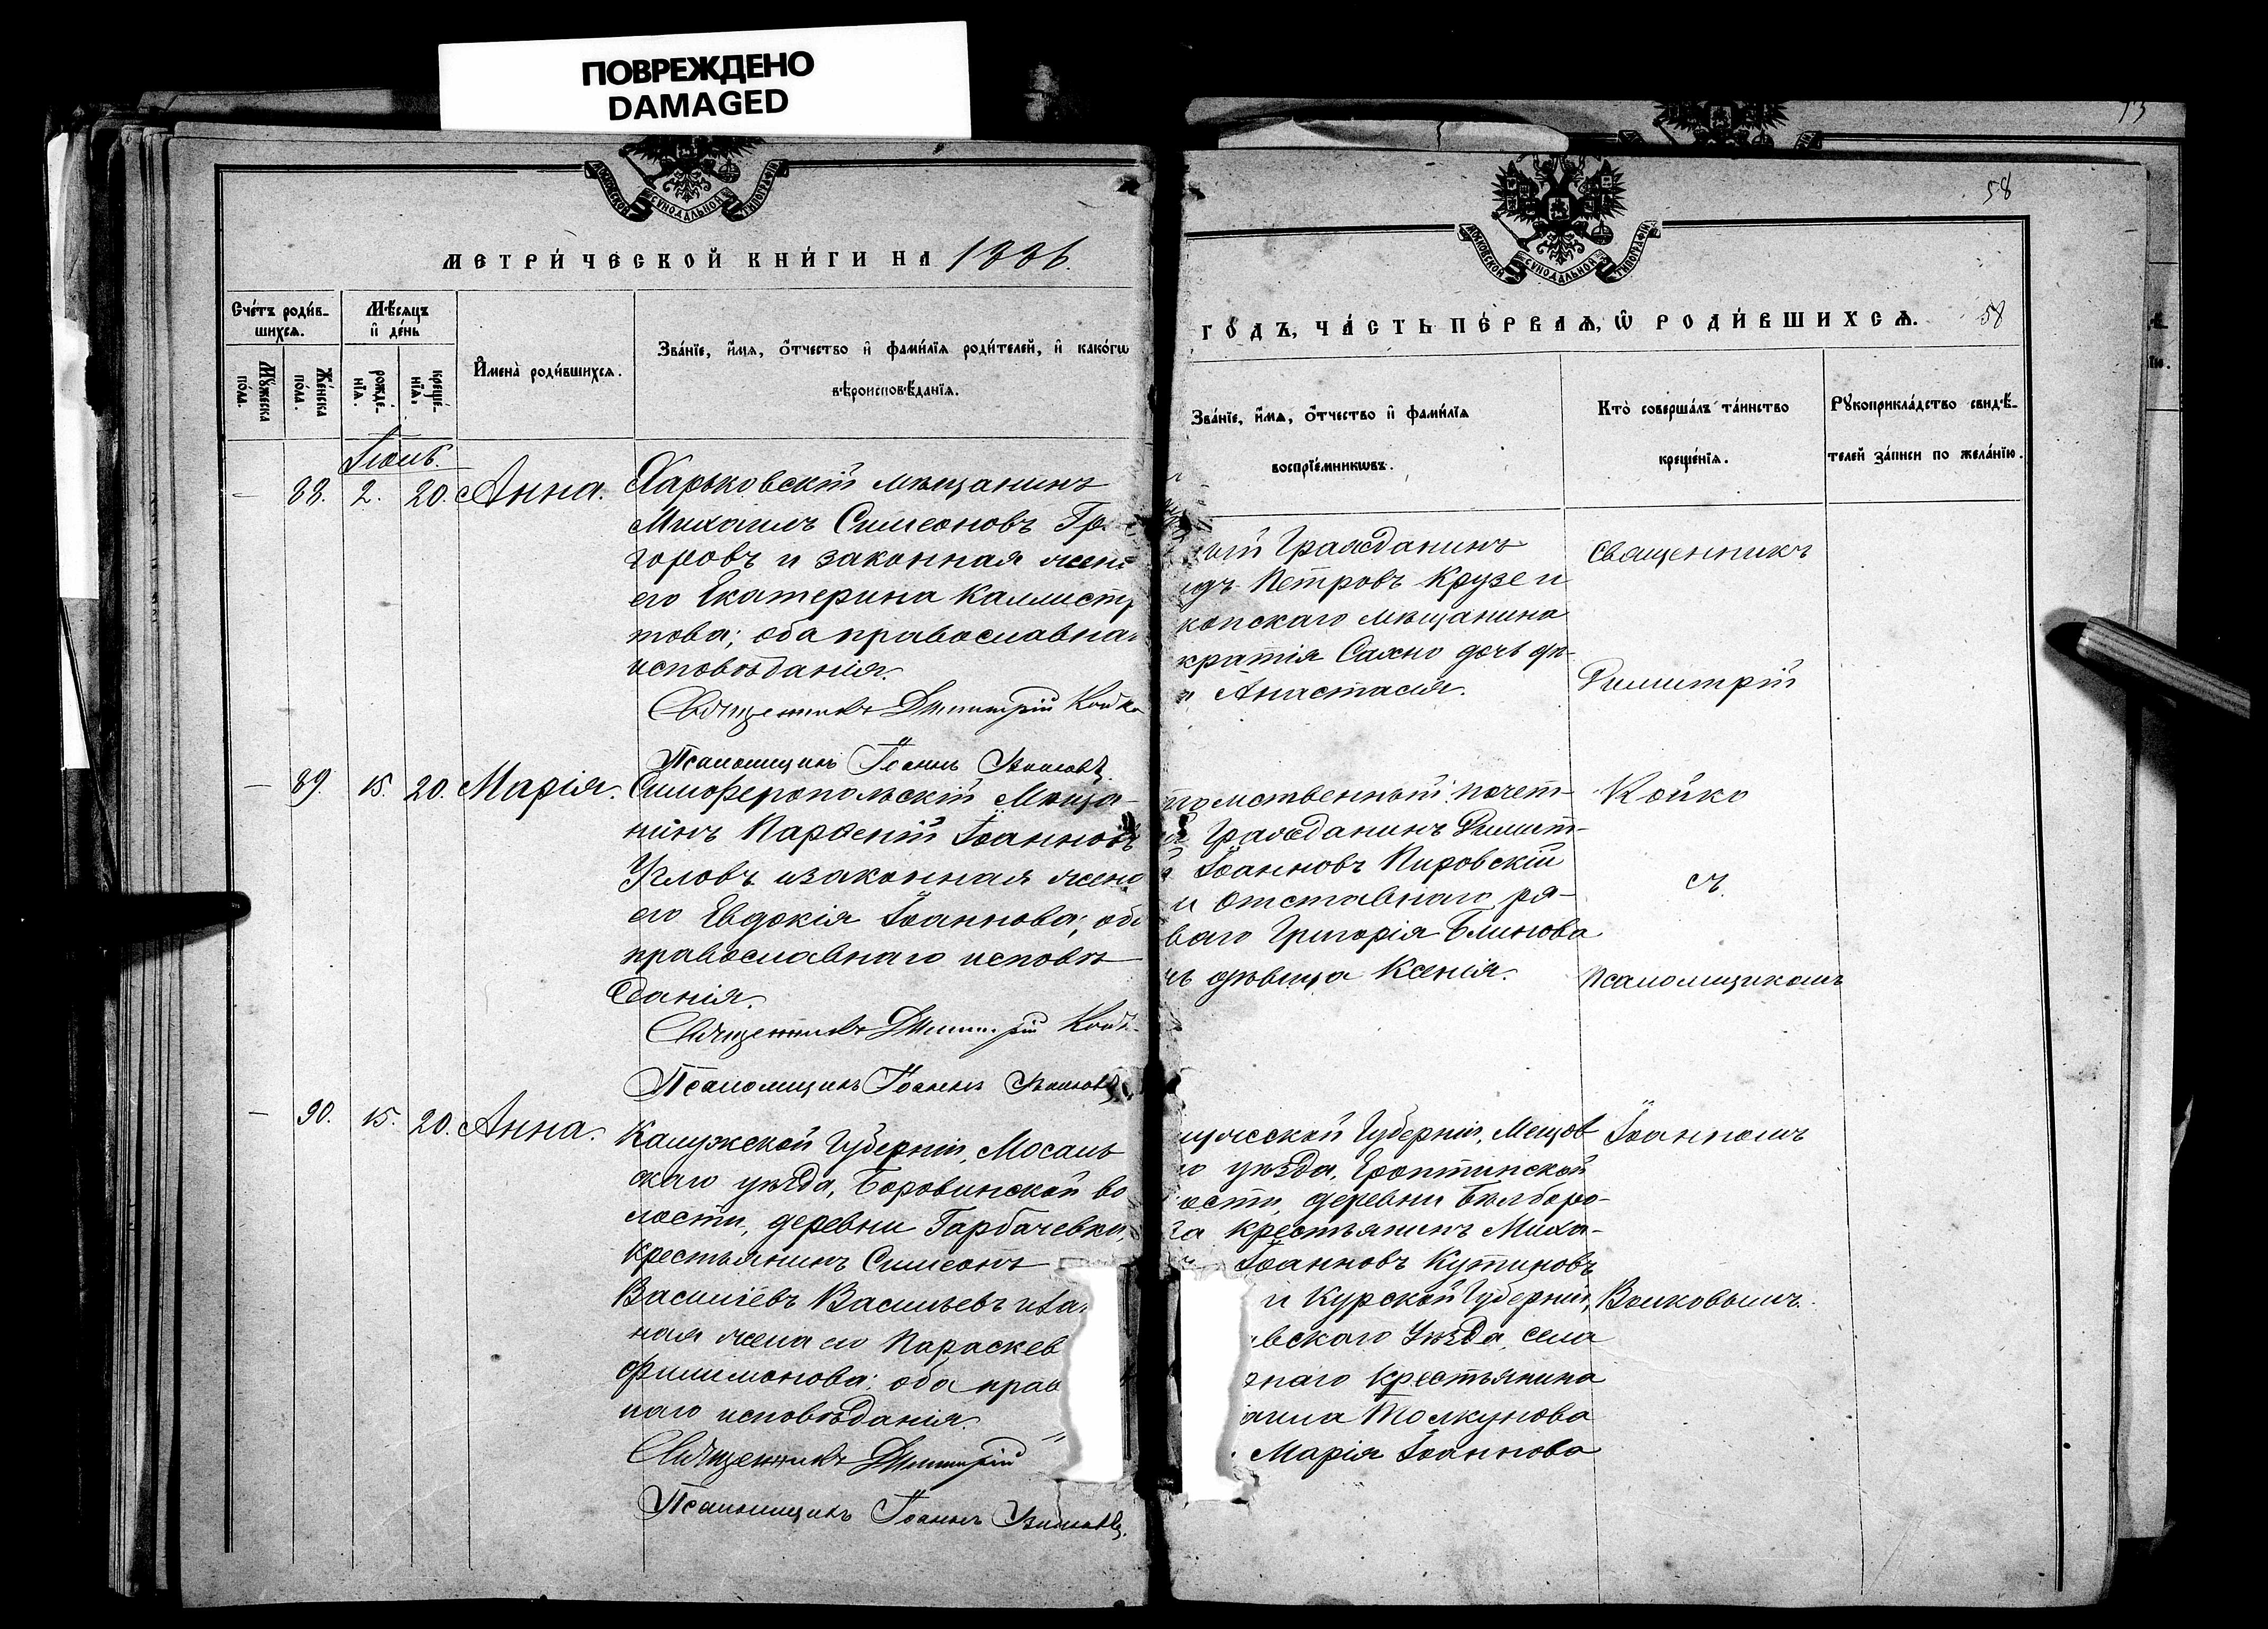 ПОВРЕЖДЕНО
DAMAGED
МОСКОВСКОЙ СѴНОДАЛЬНОЙ ТИПОГРАФІИ
МЕТРИ́ЧЕСКОЙ КНИ́ГИ НА 1886.
Сче́тъ роди́в-
шихсѧ.
Мꙋжеска по́ла.
Же́нска по́ла.
Мѣ́сяцъ
и҆ де́нь
рожде́-
нїѧ.
креще́-
нїѧ.
И҆мена̀ роди́вшихсѧ.
Зва́нїе, и҆́мѧ, ѻ҆́тчество и҆ фами́лїѧ роди́телей, и҆ како́гѡ
вѣроисповѣ́данїѧ.
Іюнь.
— 88. 2. 20. Анна.
Харьковскій мѣщанинъ
Михаилъ Симеоновъ Гр
горовъ и законная жен
его Екатерина Каллистр
това; оба православна
исповѣданія.
Священникъ Димитрій Койко
Псаломщикъ Іоаннъ Волковъ
— 89. 15. 20. Марія.
Симферопольскій Мѣща-
нинъ Парѳеній Іоанновъ
Угловъ и законная жена
его Евдокія Іоаннова; оба
православнаго исповѣ
данія.
Священникъ Димитрій Койк
Псаломщикъ Іоаннъ Волковъ
— 90. 15. 20. Анна.
Калужской Губерніи, Мосаль
скаго уѣзда, Боровинской во
лости, деревни Гарбачевки,
крестьянинъ Симеонъ
Василіевъ Васильевъ и за
ная жена его Параскев
Филимонова; оба прав
наго исповѣданія.
Священникъ Димитрій
Псаломщикъ Іоаннъ Волковъ
58
МОСКОВСКОЙ СѴНОДАЛЬНОЙ ТИПОГРАФІИ
ГО́ДЪ, ЧА́СТЬ ПЕ́РВАѦ, Ѡ҆ РОДИ́ВШИХСѦ. 58
Зва́нїе, и҆́мѧ, ѻ҆́тчество и҆ фами́лїѧ
воспрїе́мникѡвъ.
Кто̀ соверша́лъ та́инство
креще́нїѧ.
Рꙋкоприкла́дство свидѣ́-
телей за́писи по жела́нїю.
ный Гражданинъ
идъ Петровъ Крузе и
копскаго мѣщанина
кратія Сахно дочь дѣ-
Анастасія.
Священникъ
Димитрій
томственный почет-
й Гражданинъ Димит-
й Іоанновъ Пировскій
и отставнаго ря-
ваго Григорія Блинова
чь дѣвица Ксенія.
Койко
съ
Псаломщикомъ
лужской Губерніи, Мещов
го уѣзда, Ероптинской
ости, деревни
га крестьянинъ Миха-
Іоанновъ Кутиковъ
и Курской Губерніи,
вскаго Уѣзда, села
знаго крестьянина
аила Толкунова
Марія Іоаннова
Іоанномъ
Волковымъ.